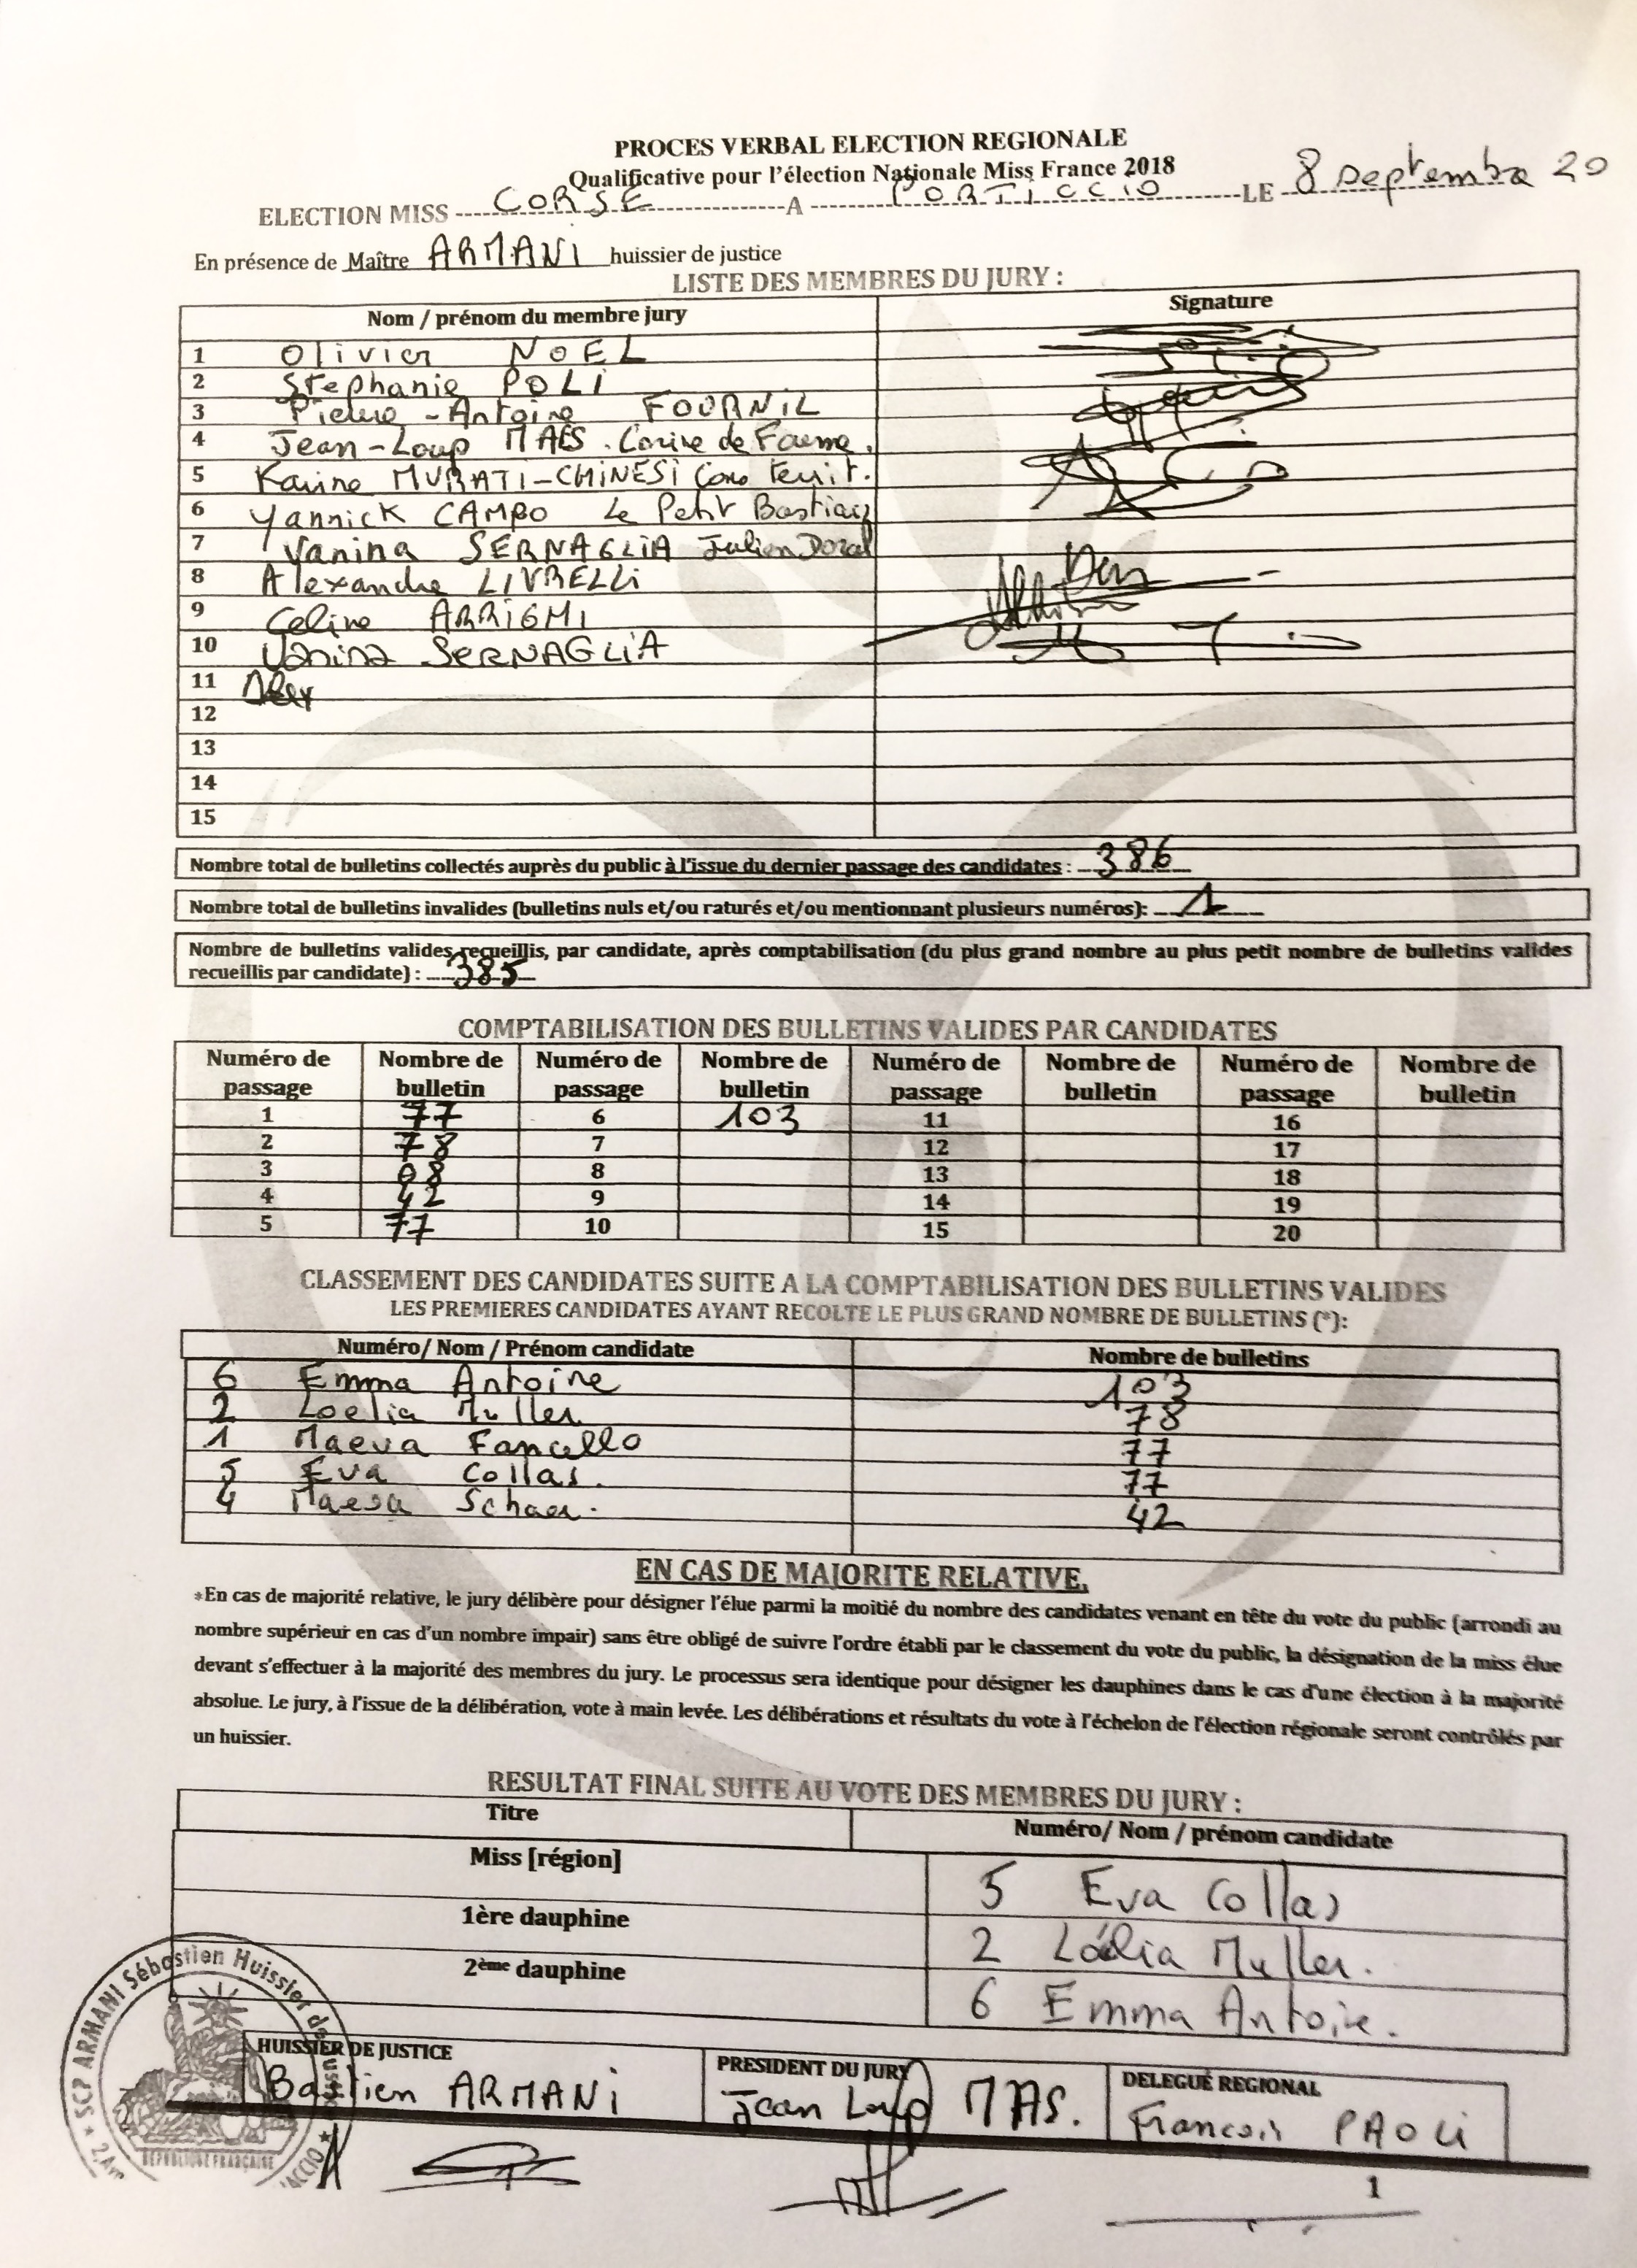 PROCES VERBAL ELECTION REGIONALE
Qualificative pour l'élection Nationale Miss France 2018
ELECTION MISS CORSE A PORTICCIO LE 8 septembre 20
En présence de Maître ARMANI huissier de justice
LISTE DES MEMBRES DU JURY :
Nom / prénom du membre jury Signature
1 Olivier NOEL
2 Stephanie POLI
3 Pierre-Antoine FOURNIL
4 Jean-Loup MAES . de
5 Karine MURATI-CHINESI
6 Yannick CAMPO Le Petit Bastiais
7 Vanina SERNAGLIA Julien
8 Alexandre LIVRELLI
9 Celine ARRIGHI
10 Vanina SERNAGLIA
11
12
13
14
15
Nombre total de bulletins collectés auprès du public à l'issue du dernier passage des candidates : 386
Nombre total de bulletins invalides (bulletins nuls et/ou raturés et/ou mentionnant plusieurs numéros): 1
Nombre de bulletins valides recueillis, par candidate, après comptabilisation (du plus grand nombre au plus petit nombre de bulletins valides
recueillis par candidate) : 385
COMPTABILISATION DES BULLETINS VALIDES PAR CANDIDATES
Numéro de Nombre de Numéro de Nombre de Numéro de Nombre de Numéro de Nombre de
passage bulletin passage bulletin passage bulletin passage bulletin
1 77 6 103 11 16
2 78 7 12 17
3 08 8 13 18
4 42 9 14 19
5 77 10 15 20
CLASSEMENT DES CANDIDATES SUITE A LA COMPTABILISATION DES BULLETINS VALIDES
LES PREMIERES CANDIDATES AYANT RECOLTE LE PLUS GRAND NOMBRE DE BULLETINS (*):
Numéro/ Nom / Prénom candidate Nombre de bulletins
6 Emma Antoine 103
2 Loelia Muller 78
1 Maeva Fancello 77
5 Eva Collas. 77
4 Maesa Schaer. 42
EN CAS DE MAJORITE RELATIVE,
*En cas de majorité relative, le jury délibère pour désigner l'élue parmi la moitié du nombre des candidates venant en tête du vote du public (arrondi au
nombre supérieur en cas d'un nombre impair) sans être obligé de suivre l'ordre établi par le classement du vote du public, la désignation de la miss élue
devant s'effectuer à la majorité des membres du jury. Le processus sera identique pour désigner les dauphines dans le cas d'une élection à la majorité
absolue. Le jury, à l'issue de la délibération, vote à main levée. Les délibérations et résultats du vote à l'échelon de l'élection régionale seront contrôlés par
un huissier.
RESULTAT FINAL SUITE AU VOTE DES MEMBRES DU JURY :
Titre Numéro/ Nom / prénom candidate
Miss [région] 5 Eva Collas
1ère dauphine 2 Loélia Muller.
2ème dauphine 6 Emma Antoine.
SCP ARMANI Sébastien Huissier de Justice
REPUBLIQUE FRANÇAISE
HUISSIER DE JUSTICE PRESIDENT DU JURY DELEGUÉ REGIONAL
Bastien ARMANI Jean Loup MAS. Francois PAOLI
1